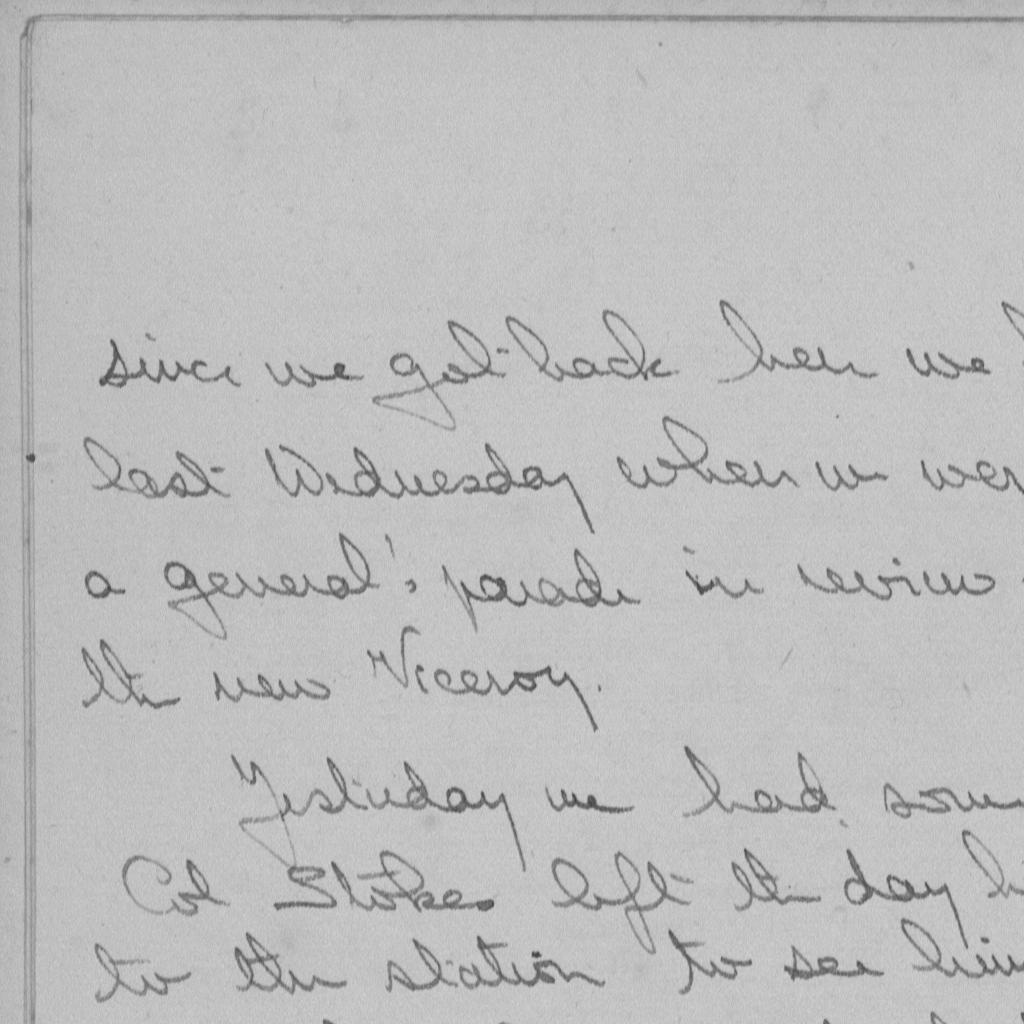 since we got back here we
last Wednesday when we wer
a general's parade in review
the new Viceroy.
Yesterday we had som
Col Stokes left the day
to the station to see him